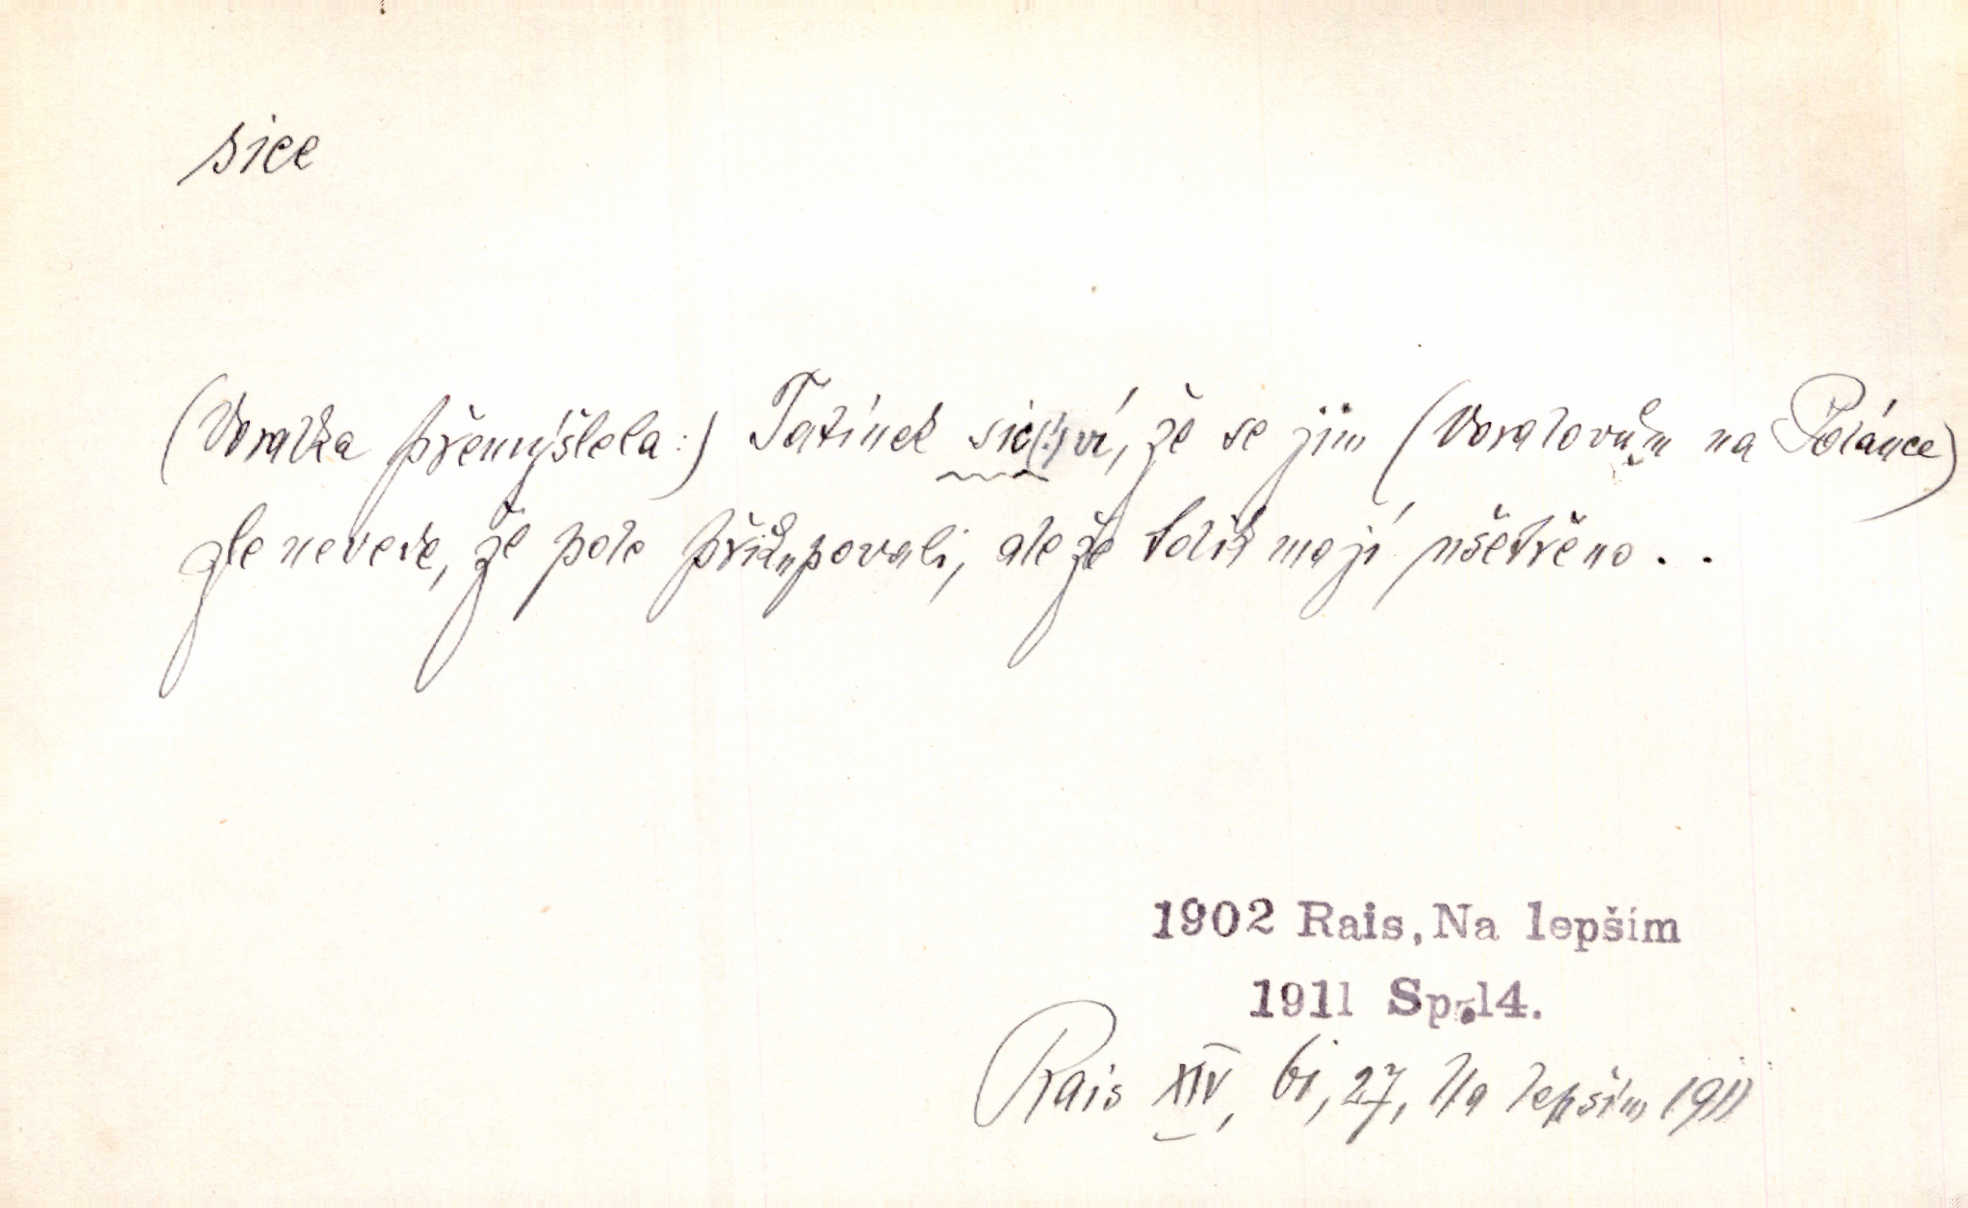 sice
(Voralka přemýšlela:) Tatínek sic(!) ví, že se jim (Voralovům na Polánce)
zle nevede, že pole přikupovali, ale že tolik mají ušetřeno . .
1902 Rais, Na lepším
1911 Sp.14.
Rais XIV, 27, Na lepším 1911